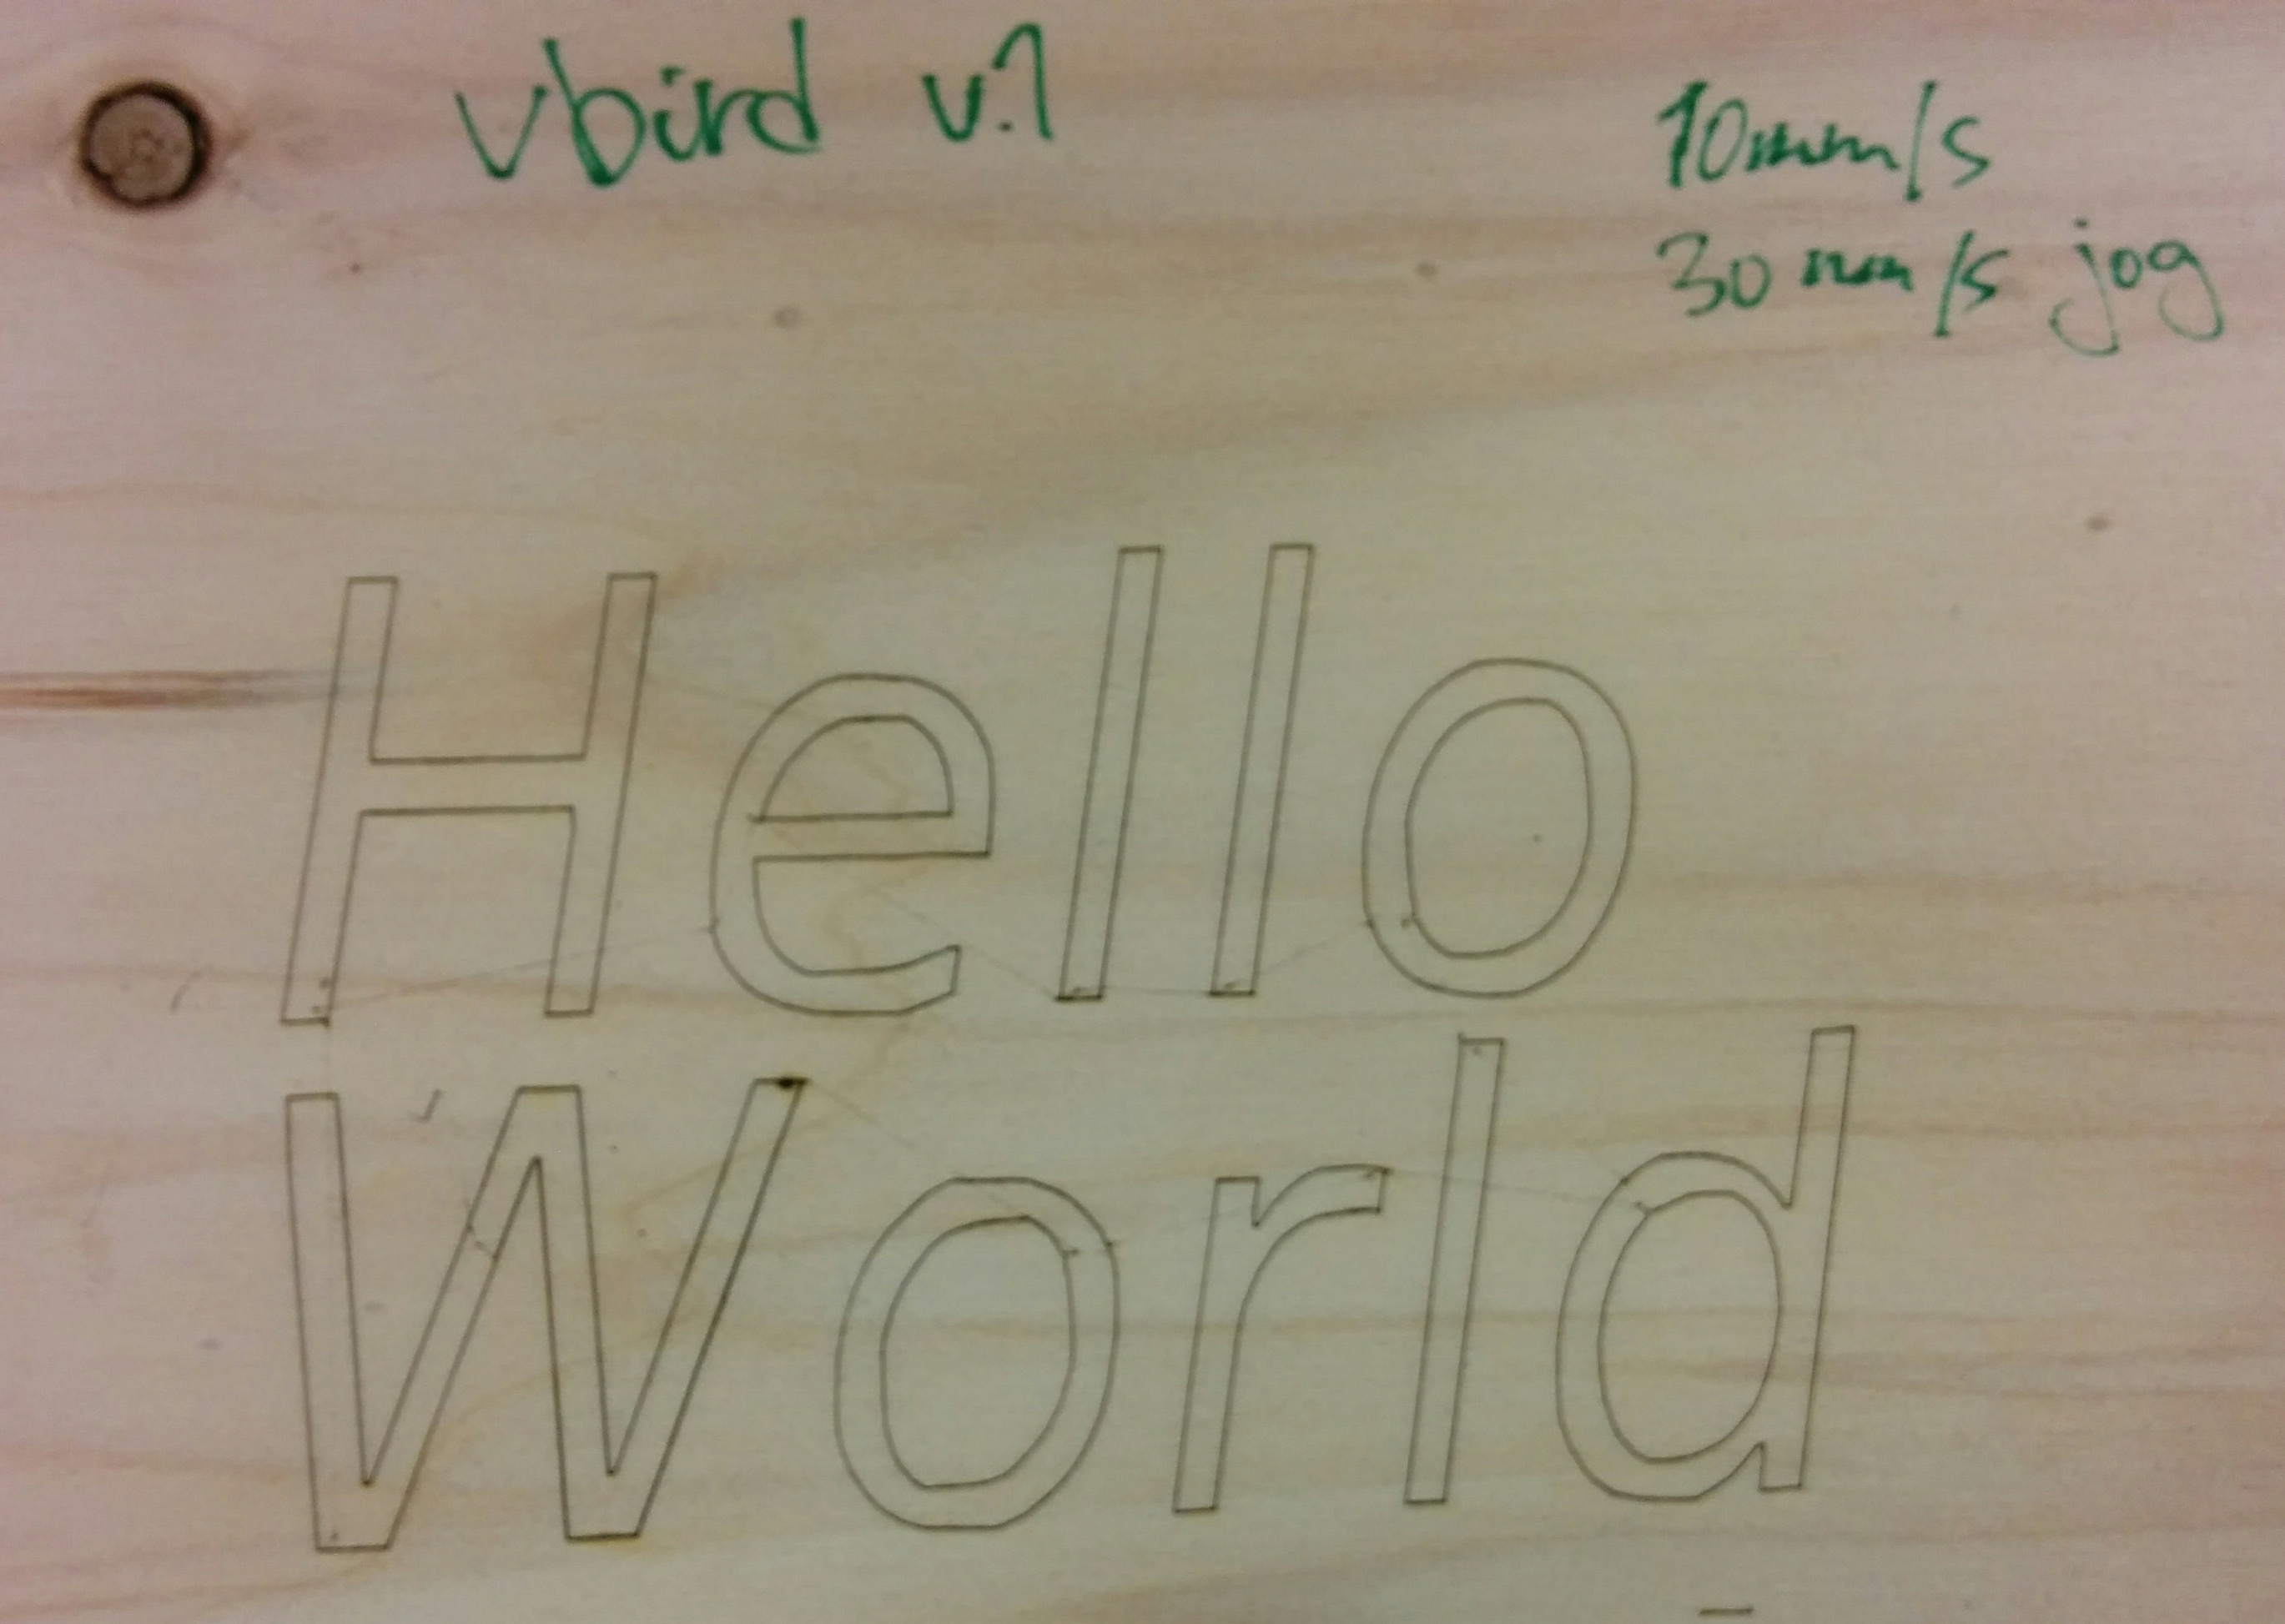 vbird v.1
10mm/s
30mm/s jog
Hello
World